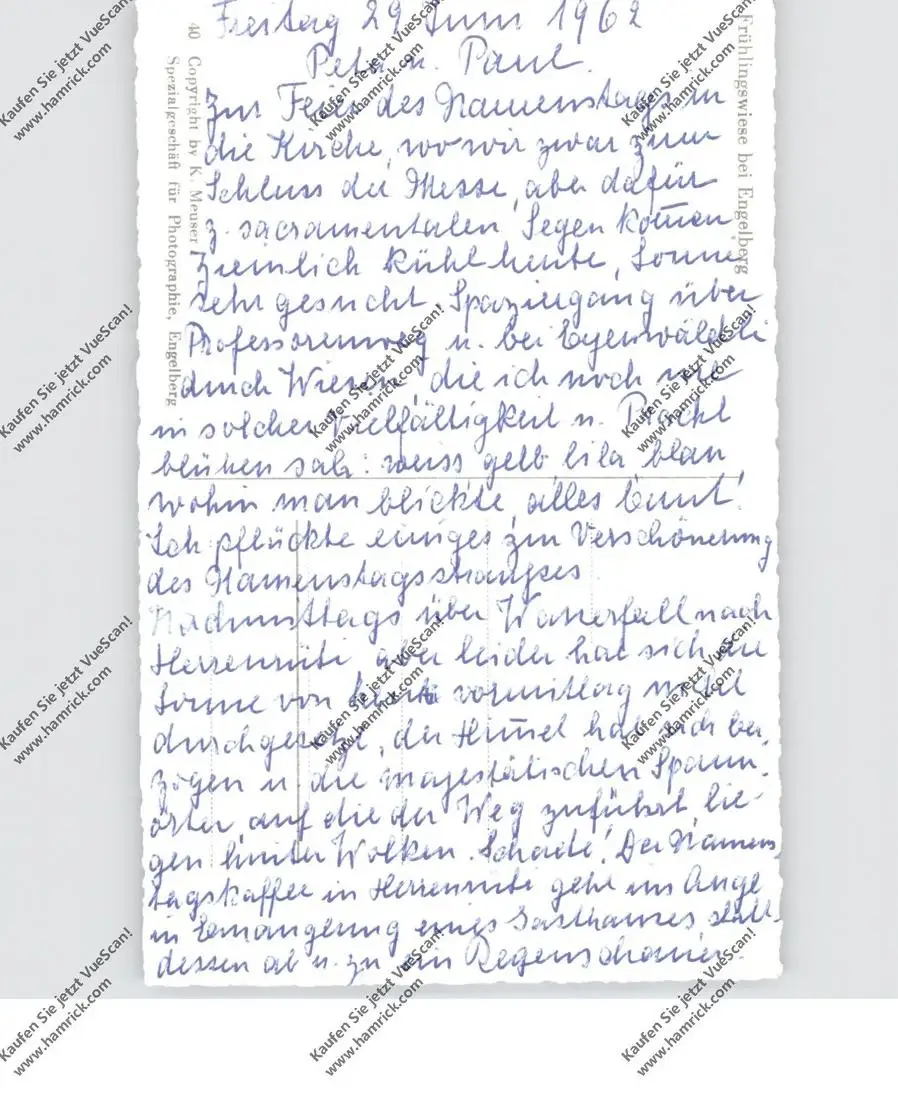 Freitag 29 Juni 1962
Peter u. Paul.
Zur Feier des Namenstags in
die Kirche, wo wir zwar zum
Schluss der Messe, aber dafür
z. sacramentalen Segen kom̄en
Ziemlich kühl heute, Sonne
sehr gesucht. Spaziergang über
Professorenweg u. bei Eyenwäldli
durch Wiesen, die ich noch nie
in solcher Vielfältigkeit u. Pracht
blühen sah: weiss gelb lila blau
wohin man blickte, alles bunt!
Ich pflückte einiges zur Verschönerung
des Namenstagsstrausses
Nachmittags über Wasserfall nach
Herrenrüti, aber leider hat sich die
Sonne von vormittag nicht
durchgesetzt, der Him̄el hat sich be-
zogen u. die majestätischen Spann-
örter, auf die der Weg zuführt, lie-
gen hinter Wolken. Schade! Der Namens-
tagskaffee in Herrenrüti geht ins Auge
in Ermanglung eines Gasthauses, statt-
dessen ab u. zu ein Regenschauer.
Frühlingswiese bei Engelberg
40 Copyright by K. Meuser
Spezialgeschäft für Photographie, Engelberg
Kaufen Sie jetzt VueScan!
www.hamrick.com
Kaufen Sie jetzt VueScan!
www.hamrick.com
Kaufen Sie jetzt VueScan!
www.hamrick.com
Kaufen Sie jetzt VueScan!
www.hamrick.com
Kaufen Sie jetzt VueScan!
www.hamrick.com
Kaufen Sie jetzt VueScan!
www.hamrick.com
Kaufen Sie jetzt VueScan!
www.hamrick.com
Kaufen Sie jetzt VueScan!
www.hamrick.com
Kaufen Sie jetzt VueScan!
www.hamrick.com
Kaufen Sie jetzt VueScan!
www.hamrick.com
Kaufen Sie jetzt VueScan!
www.hamrick.com
Kaufen Sie jetzt VueScan!
www.hamrick.com